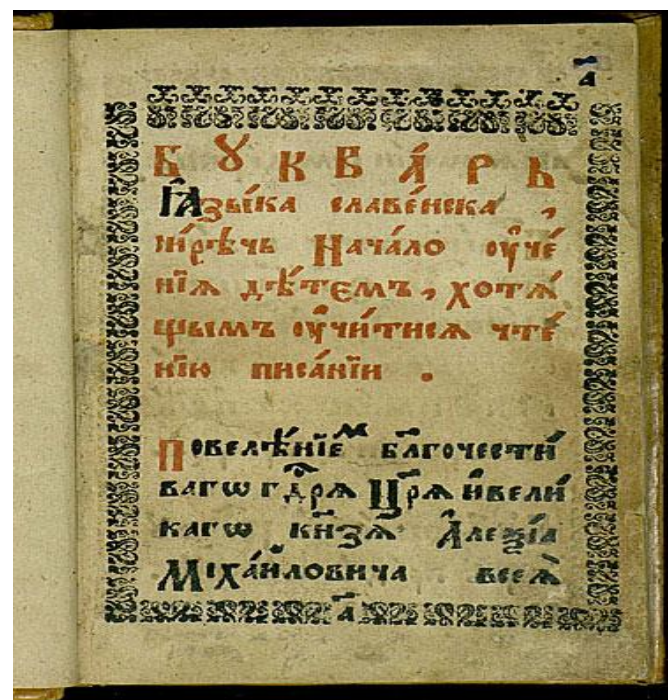 а҃
БꙊКВА́РЬ
Ꙗ҆зы́ка славе́нска,
си́рѣчь Нача́ло ᲂу҆че́
нїѧ дѣ́темъ, хотѧ́
щымъ ᲂу҆чи́тисѧ чте́
нїю писа́нїи.
Повелѣ́нїеⷨ бл҃гочести́
вагѡ гдⷭ҇рѧ Цр҃ѧ и҆вели́
кагѡ кн҃зѧ А҆леѯі́а
Міха́иловича всеѧ̀
а҃